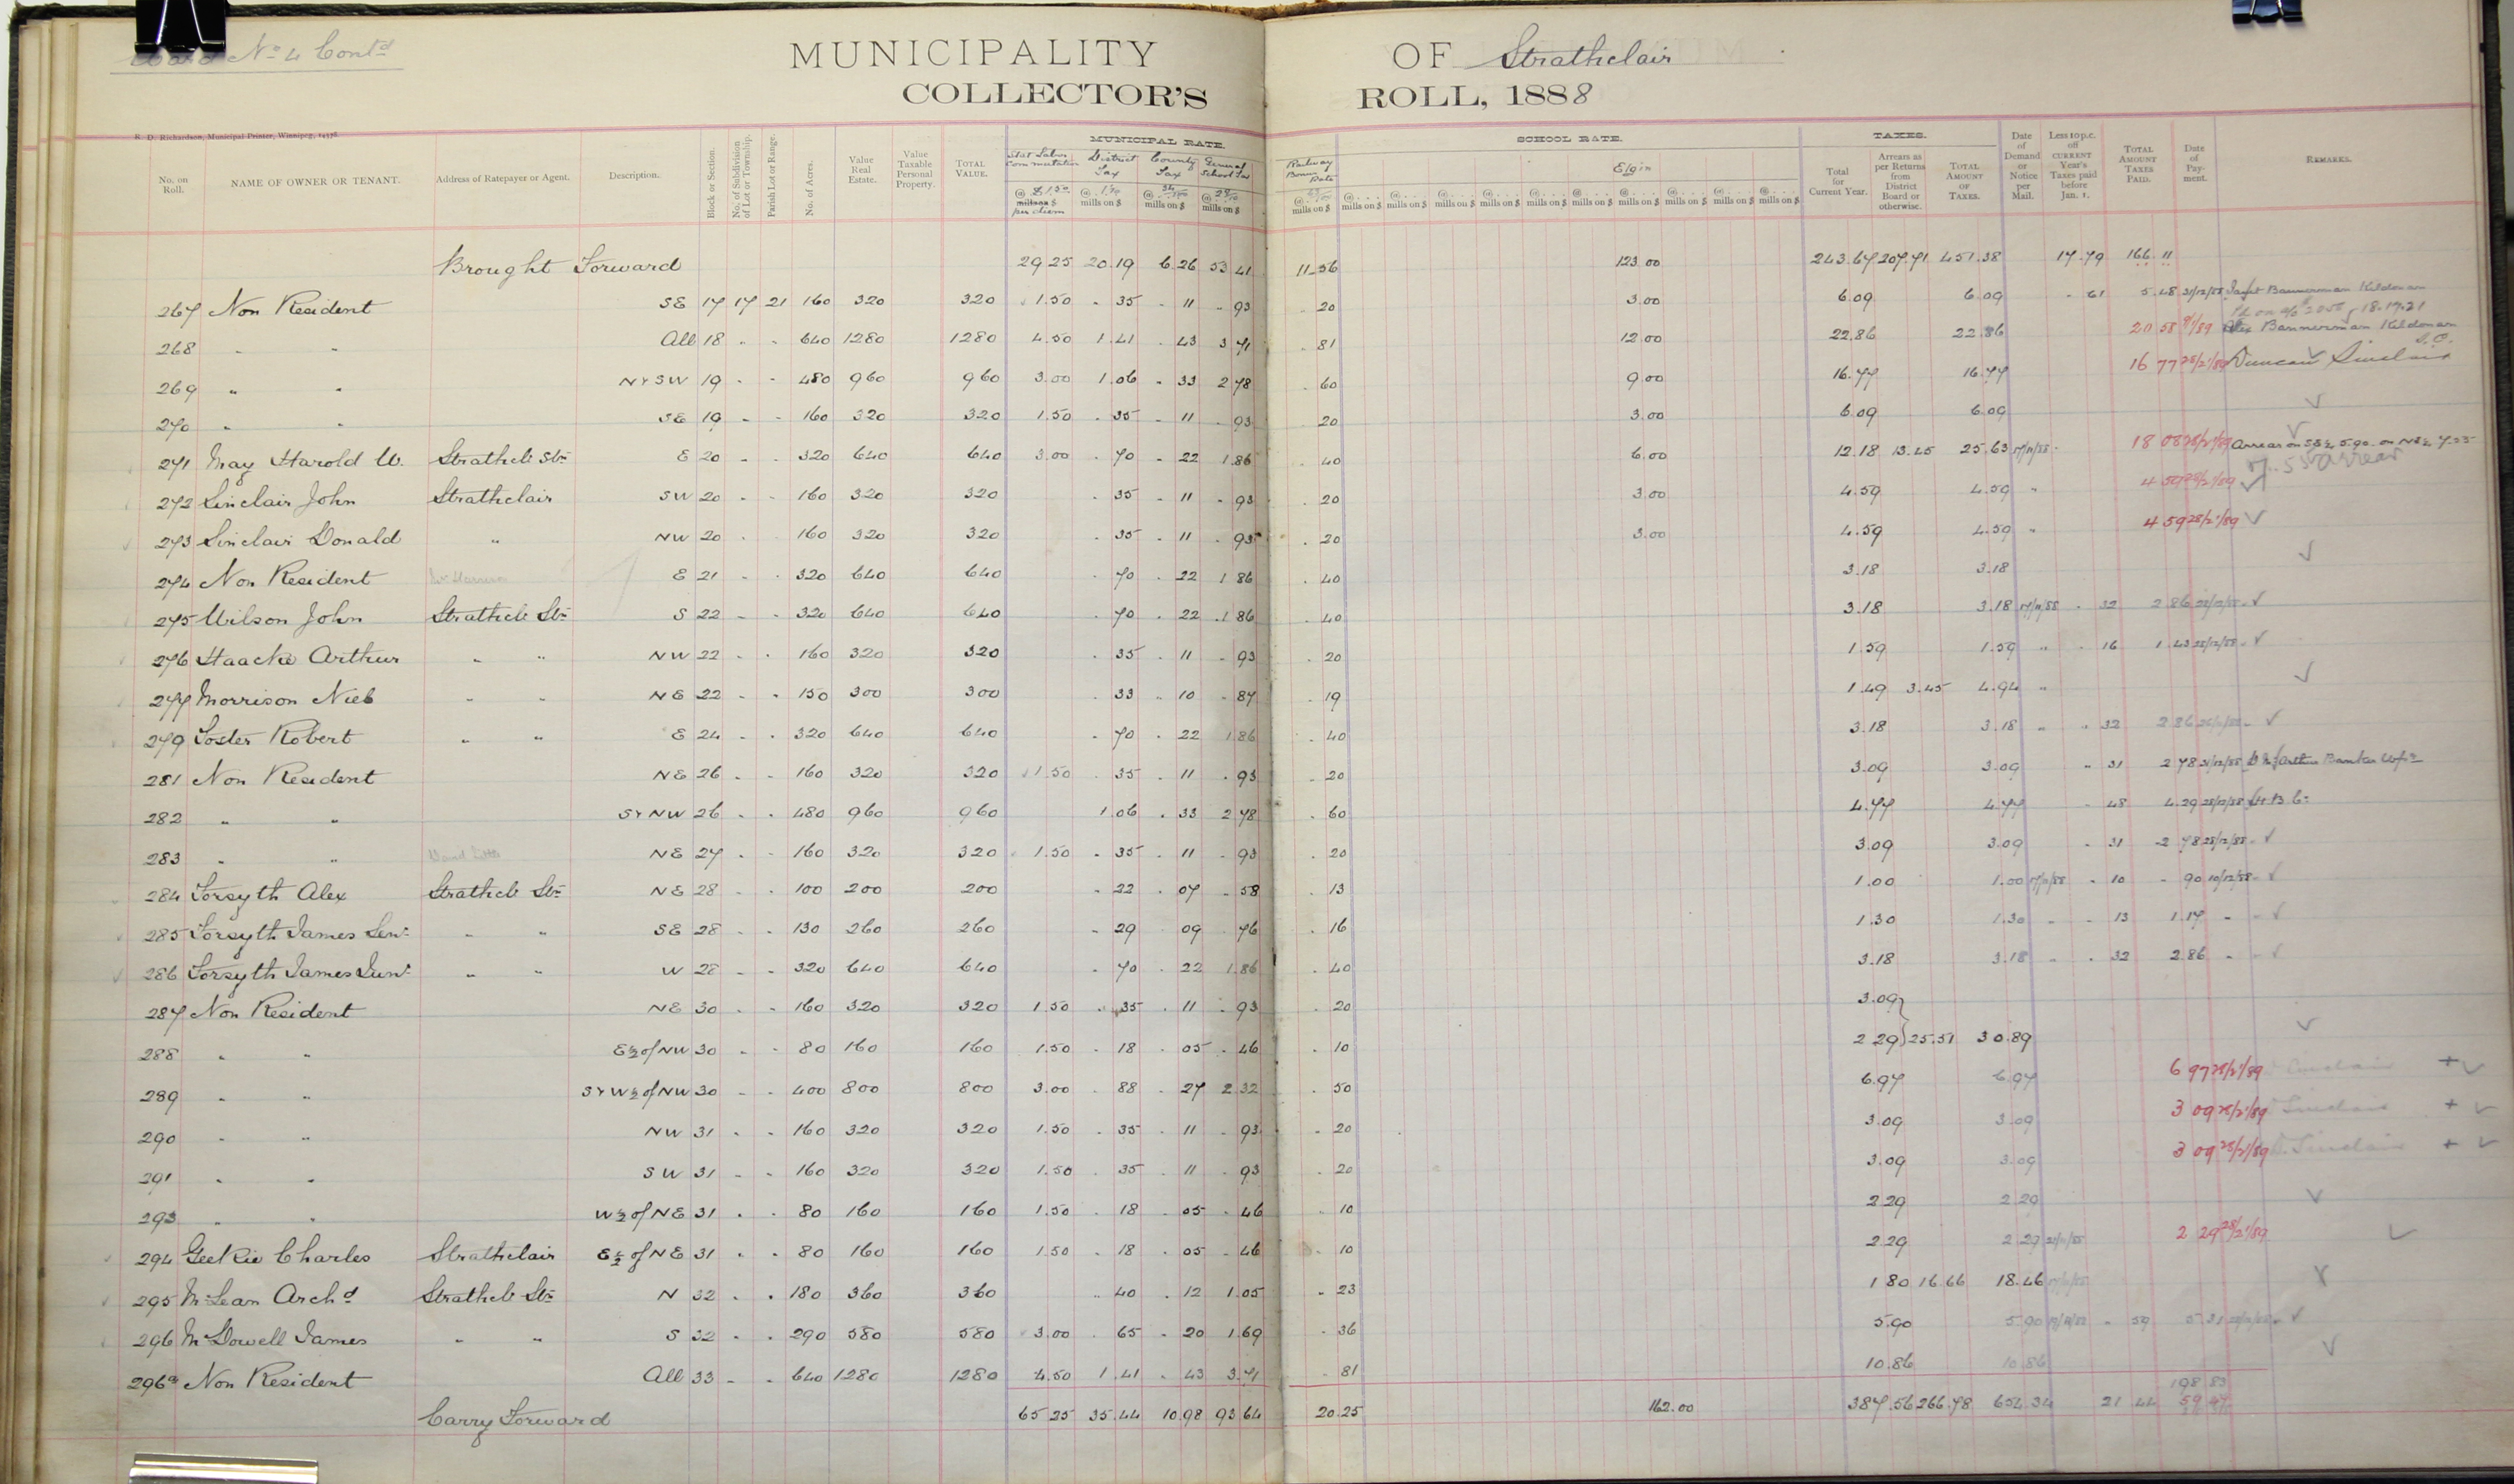 Ward No 4 Contd
MUNICIPALITY OF Strathclair
COLLECTOR'S ROLL, 1888
R. D. Richardson, Municipal Printer, Winnipeg, 14376
No. on Roll. NAME OF OWNER OR TENANT. Address of Ratepayer or Agent. Description. Block or Section. No. of Subdivision of Lot or Township. Parish Lot or Range. No. of Acres. Value Real Estate. Value Taxable Personal Property. TOTAL VALUE. MUNICIPAL RATE. Stat Labor Commutation District Tax County Tax General School Tax Railway Bonus Rate SCHOOL RATE. Elgin TAXES. Total for Current Year. Arrears as per Returns from District Board or otherwise. TOTAL AMOUNT OF TAXES. Date of Demand or Notice per Mail. Less 10 p.c. off CURRENT Year's Taxes paid before Jan. 1. TOTAL AMOUNT TAXES PAID. Date of Payment. REMARKS.
Brought Forward 29 25 20.19 6.26 53 41 11.56 123.00 243.67 207.71 451.38 17.79 166.11
267 Non Resident SE 17 17 21 160 320 320 1.50 35 11 93 20 3.00 6.09 6.09 61 5.48 31/12/88 Bannerman Kildonan
268 " " All 18 " " 640 1280 1280 4.50 1.41 43 3 71 81 12.00 22.86 22.86 20 58 Alex Bannerman Kildonan
269 " " N & SW 19 " " 480 960 960 3.00 1.06 33 2 78 60 9.00 16.77 16.77 16 77 28/2/89 Duncan Sinclair
270 " " SE 19 " " 160 320 320 1.50 35 11 93 20 3.00 6.09 6.09
271 May Harold W. Strathcl Stn E 20 " " 320 640 640 3.00 70 22 1.86 40 6.00 12.18 13.45 25.63 17/11/88 18 08 28/2/89 Arrears on SE¼ 5.90 on NE¼ 7.55
7.55 arrear
272 Sinclair John Strathclair SW 20 " " 160 320 320 35 11 93 20 3.00 4.59 4.59 " 4 59 28/2/89
273 Sinclair Donald " NW 20 " " 160 320 320 35 11 93 20 3.00 4.59 4.59 " 4 59 28/2/89
274 Non Resident E 21 " " 320 640 640 70 22 1 86 40 3.18 3.18
275 Wilson John Strathcl Stn S 22 " " 320 640 640 70 22 1 86 40 3.18 3.18 17/11/88 32 2 86 28/12/88
276 Haacke Arthur " " NW 22 " " 160 320 320 35 11 93 20 1.59 1.59 " 16 1.43 28/12/88
277 Morrison Niel " " NE 22 " " 150 300 300 33 10 87 19 1.49 3.45 4.94 "
279 Foster Robert " " E 24 " " 320 640 640 70 22 1 86 40 3.18 3.18 " 32 2 86
281 Non Resident NE 26 " " 160 320 320 1.50 35 11 93 20 3.09 3.09 31 2 78 31/12/88 Arthur Banker Wpg
282 " " S & NW 26 " " 480 960 960 1.06 33 2 78 60 4.77 4.77 48 4.29 28/12/88 H B Co
283 " " NE 27 " " 160 320 320 1.50 35 11 93 20 3.09 3.09 31 2 78 28/12/88
284 Forsyth Alex Strathcl Stn NE 28 " " 100 200 200 22 07 58 13 1.00 1.00 17/11/88 10 90 10/12/88
285 Forsyth James Senr " " SE 28 " " 130 260 260 29 09 76 16 1.30 1.30 " 13 1.17 "
286 Forsyth James Junr " " W 28 " " 320 640 640 70 22 1.86 40 3.18 3.18 " 32 2.86 "
287 Non Resident NE 30 " " 160 320 320 1.50 35 11 93 20 3.09
288 " " E½ of NW 30 " " 80 160 160 1.50 18 05 46 10 2 29 25.51 30.89
289 " " S & W½ of NW 30 " " 400 800 800 3.00 88 27 2.32 50 6.97 6.97 6 97 28/2/89 Sinclair
290 " " NW 31 " " 160 320 320 1.50 35 11 93 20 3.09 3.09 3 09 28/2/89 Sinclair
291 " " SW 31 " " 160 320 320 1.50 35 11 93 20 3.09 3.09 3 09 28/2/89 Sinclair
293 " " W½ of NE 31 " " 80 160 160 1.50 18 05 46 10 2.29 2.29
294 Geekie Charles Strathclair E½ of NE 31 " " 80 160 160 1.50 18 05 46 10 2.29 2 29 2 29 28/2/89
295 McLean Archd Strathcl Stn N 32 " " 180 360 360 40 12 1.05 23 1 80 16.66 18.46
296 McDowell James " " S 32 " " 290 580 580 3.00 65 20 1.69 36 5.90 5.90 59 5.31
296a Non Resident All 33 " " 640 1280 1280 4.50 1.41 43 3.71 81 10.86 10.86
198 83
Carry Forward 65 25 35.44 10.98 93 64 20.25 162.00 387.56 266.78 654.34 21 44